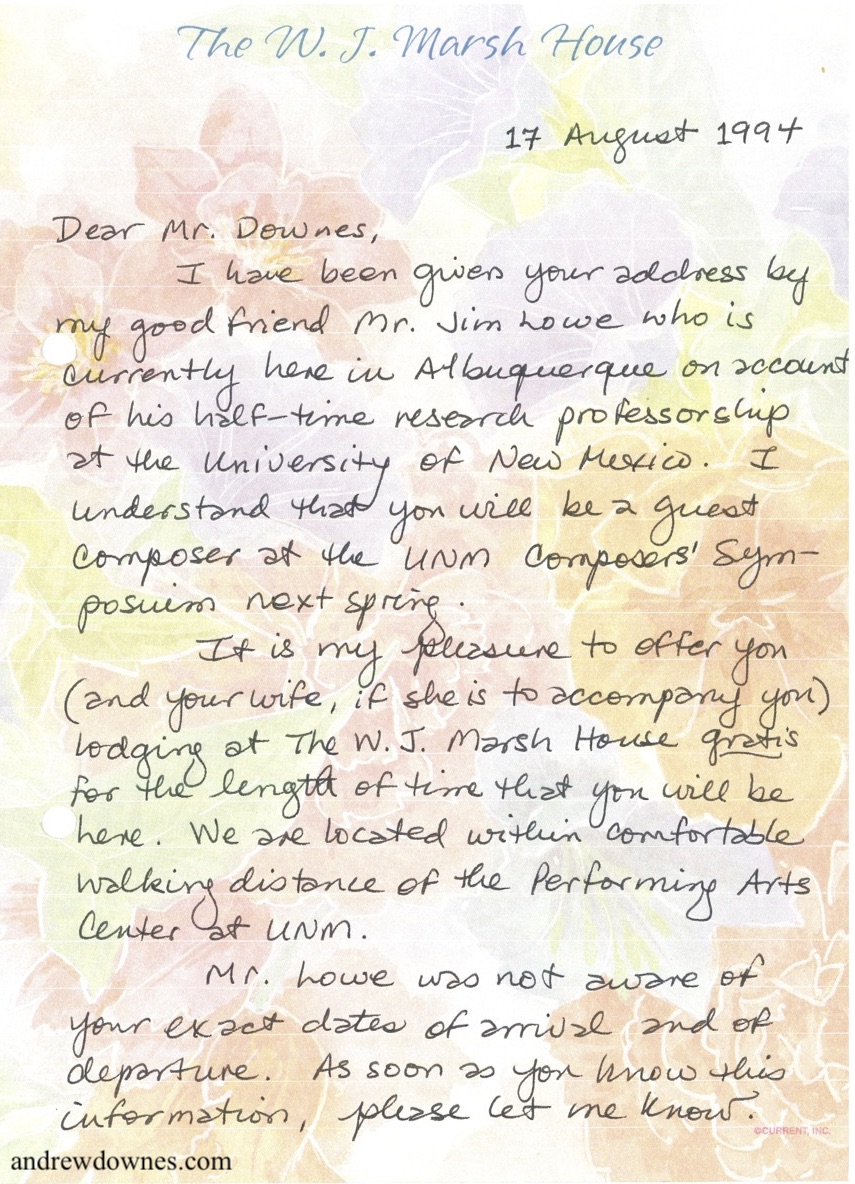 The W. J. Marsh House
17 August 1994
Dear Mr. Downes,
I have been given your address by
my good friend Mr. Jim Lowe who is
currently here in Albuquerque on account
of his half-time research professorship
at the University of New Mexico. I
understand that you will be a guest
composer at the UNM Composers' Sym-
posuim next spring.
It is my pleasure to offer you
(and your wife, if she is to accompany you)
lodging at The W. J. Marsh House gratis
for the length of time that you will be
here. We are located within comfortable
walking distance of the Performing Arts
Center at UNM.
Mr. Lowe was not aware of
your exact dates of arrival and of
departure. As soon as you know this
information, please let me know.
©CURRENT, INC.
andrewdownes.com